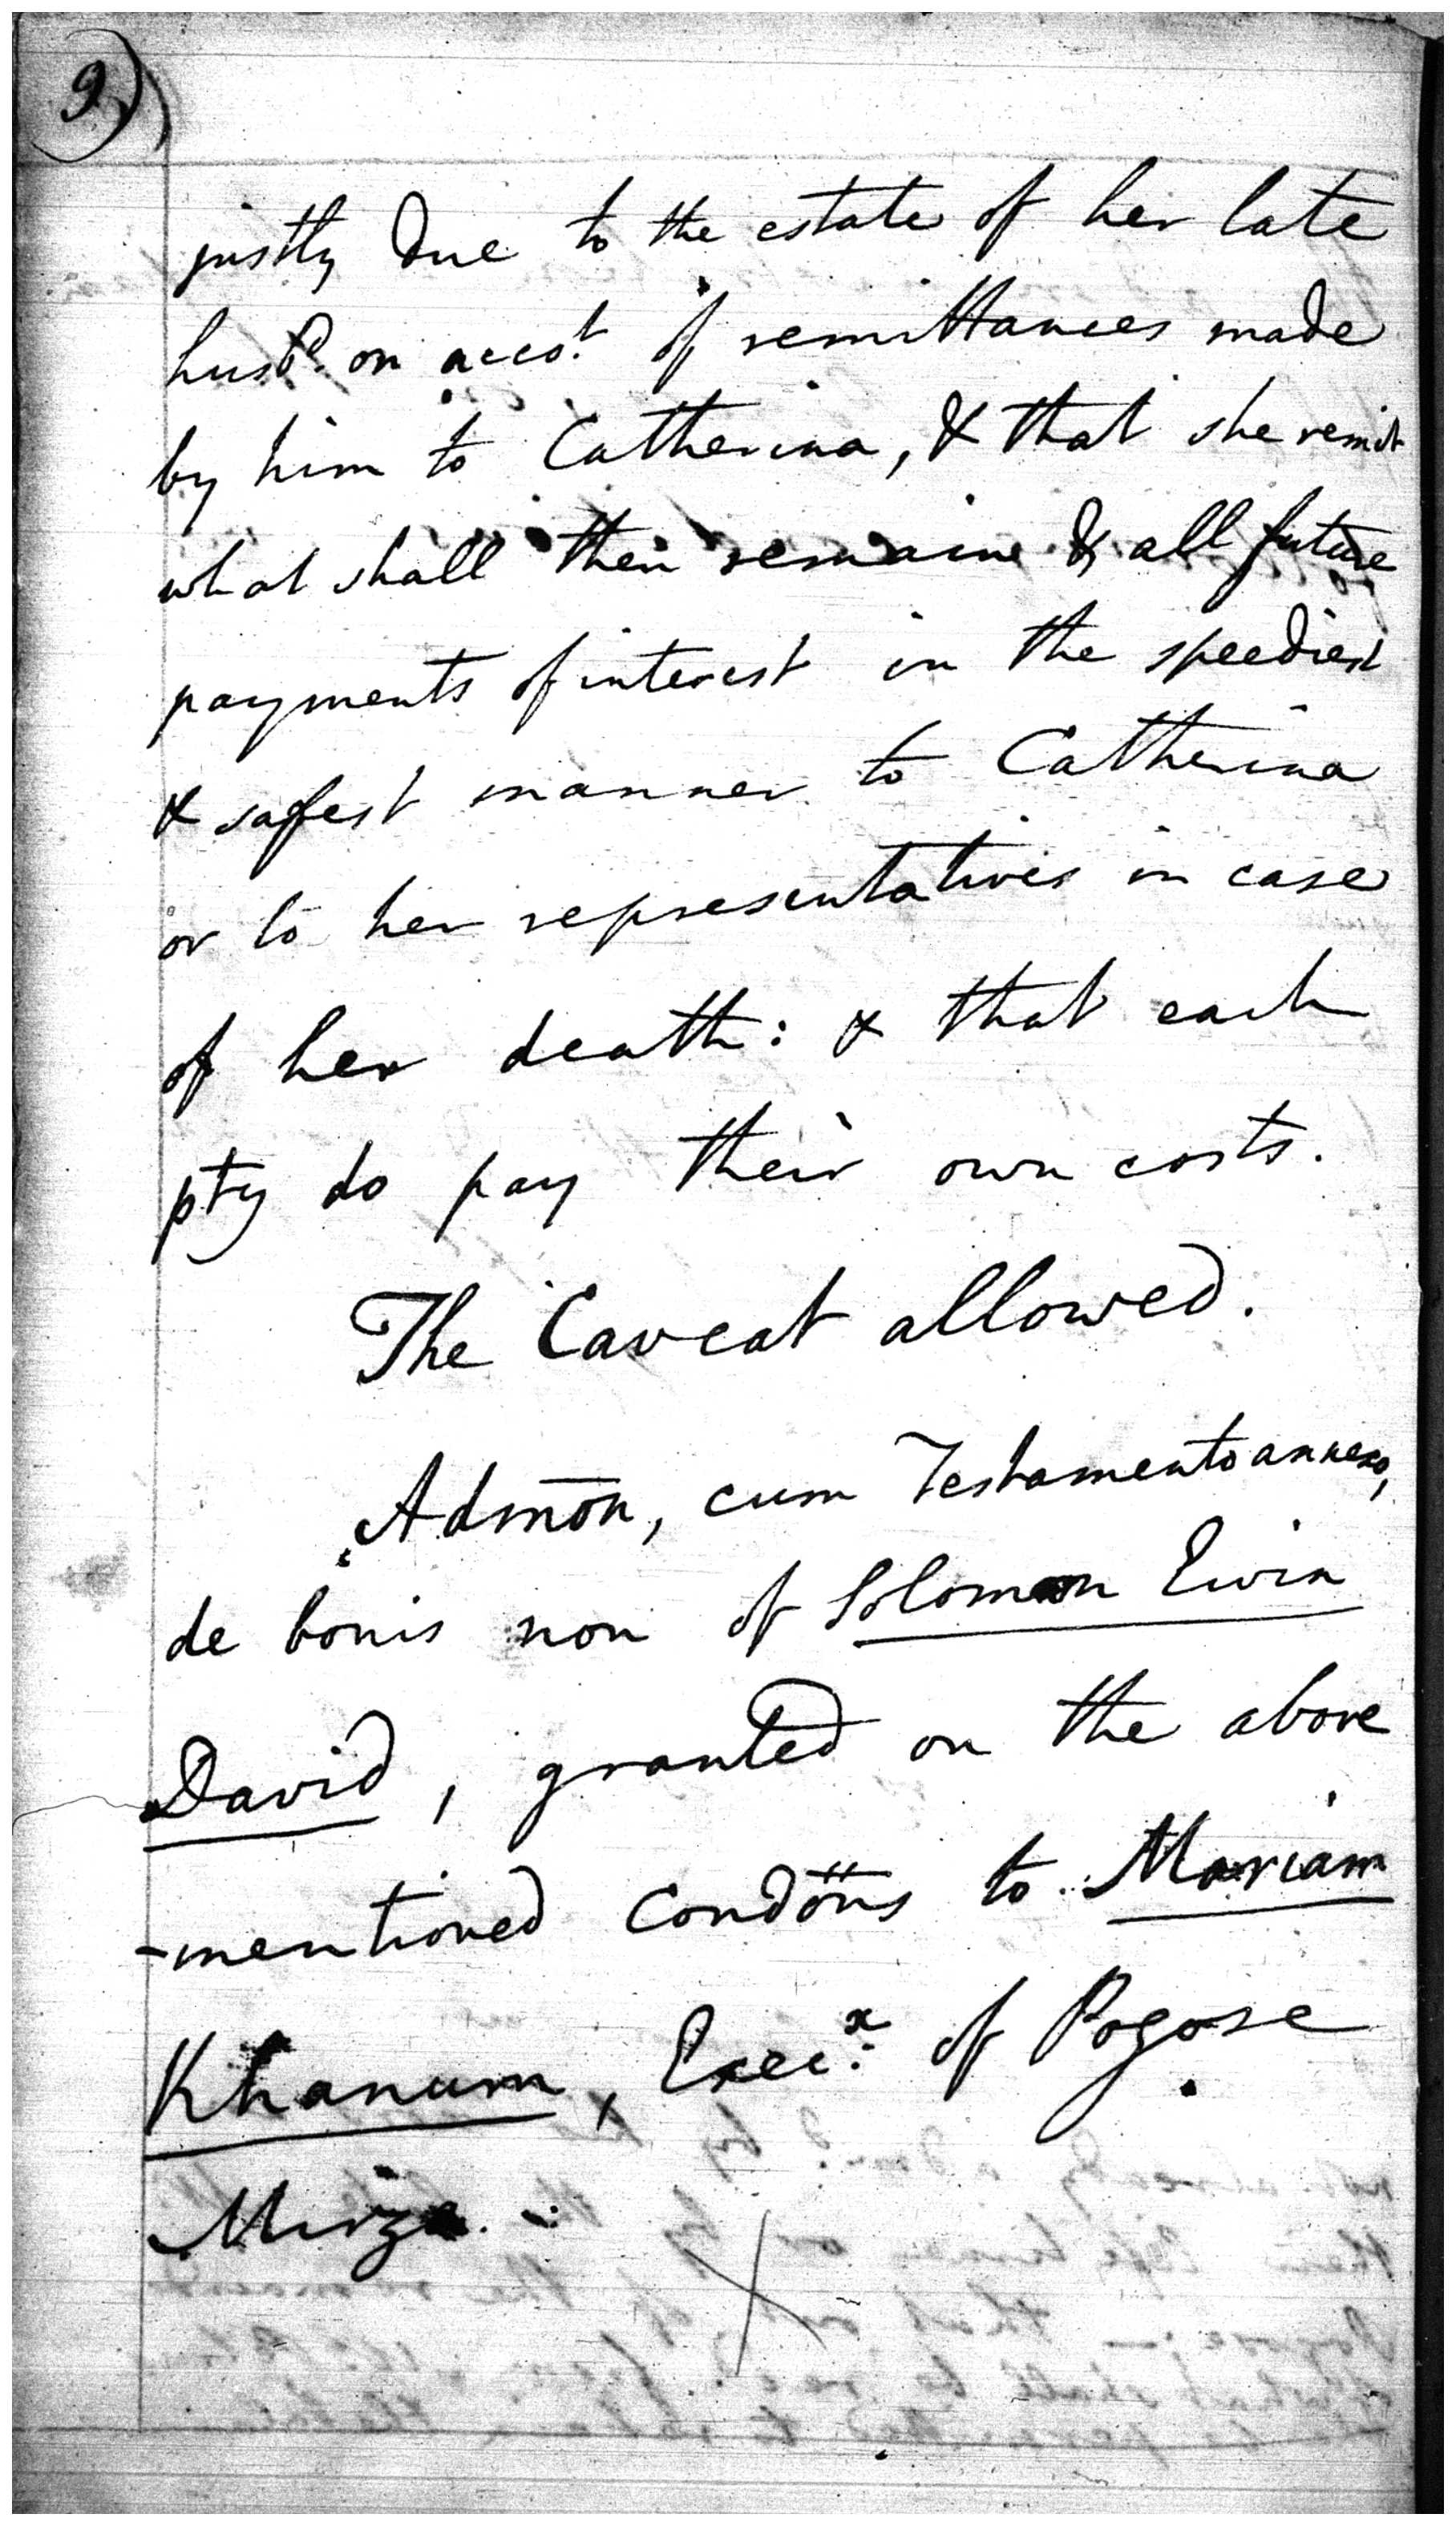 9)
justly due to the estate of her late
husbd. on accot. of remittances made
by him to Catherina, & that she remit
what shall then remain & all future
payments of interest in the speediest
& safest manner to Catherina
or to her representatives in case
of her death: & that each
pty do pay their own costs.
The Caveat allowed.
Admōn, cum Testamento annexo,
de bonis non of Solomon Ewin
David, granted on the above
-mentioned Condōns to Mariam
Khanum, Execx. of Pogose
Mirza.